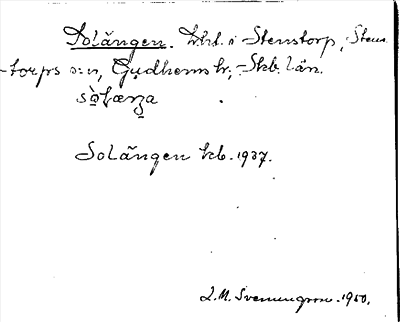 Solängen. Lht. i Stenstorp, Stens-
torps s:n, Gudhems hr, Skb. län.
sòlæŋa
Solängen kb. 1937.
L. M. Svennungsson. 1950.